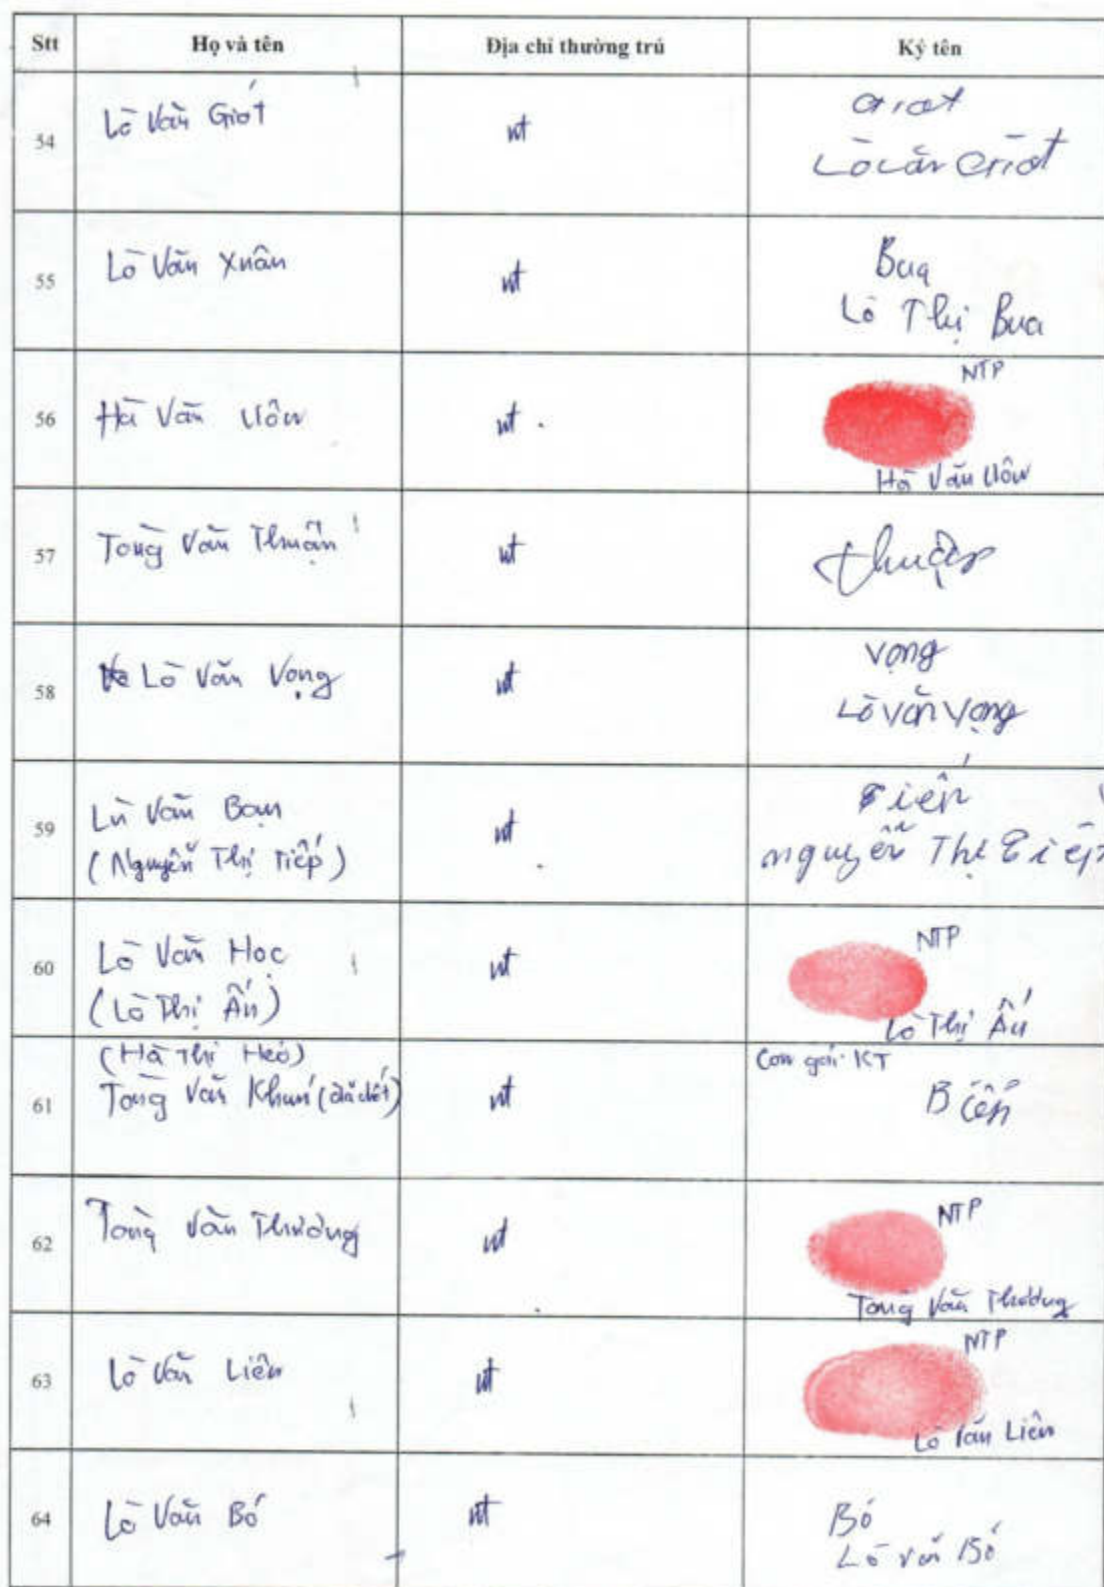 Stt Họ và tên Địa chỉ thường trú Ký tên
54 Lò Văn Giót nt Giót
Lò Văn Giót
55 Lò Văn Xuân nt Bua
Lò Thị Bua
56 Hà Văn Uôn nt NTP
Hà Văn Uôn
57 Tòng Văn Thuận nt Thuận
58 Lò Văn Vọng nt Vọng
Lò Văn Vọng
59 Lù Văn Bạn nt
(Nguyễn Thị Tiếp) nguyễn Thị Tiếp
60 Lò Văn Học nt NTP
(Lò Thị Ấn) Lò Thị Ấn
(Hà Thị Heó) Con gái KT
61 Tòng Văn Khun (đã chết) nt Biến
62 Tòng Văn Thương nt NTP
Tòng Văn Thương
63 Lò Văn Liên nt NTP
Lò Văn Liên
64 Lò Văn Bó nt Bó
Lò Văn Bó